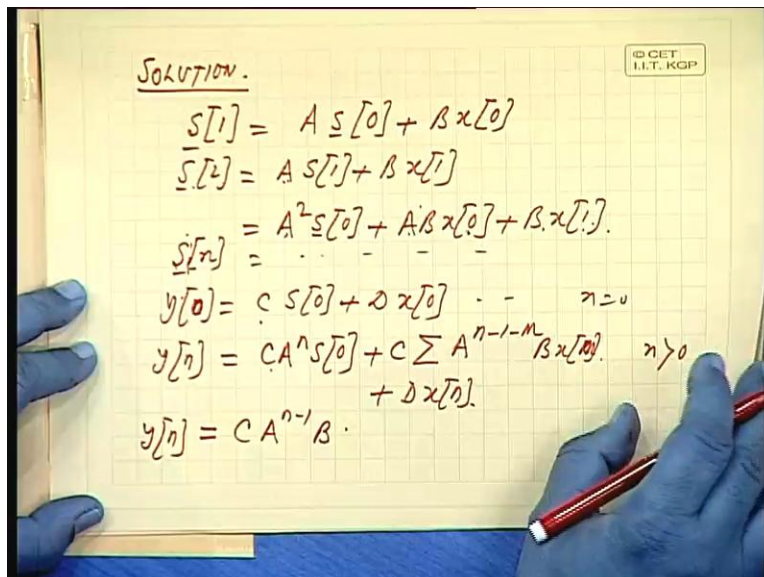 © CET
I.I.T. KGP
SOLUTION.
S[1] = A S[0] + B x[0]
S[2] = A S[1] + B x[1]
= A²S[0] + AB x[0] + B x[1].
S[n] = . . - - - -
y[0] = C S[0] + D x[0] . - n=0
y[n] = CAⁿS[0] + C Σ A^{n-1-m} B x[m]. n>0
+ D x[n].
y[n] = C A^{n-1} B .